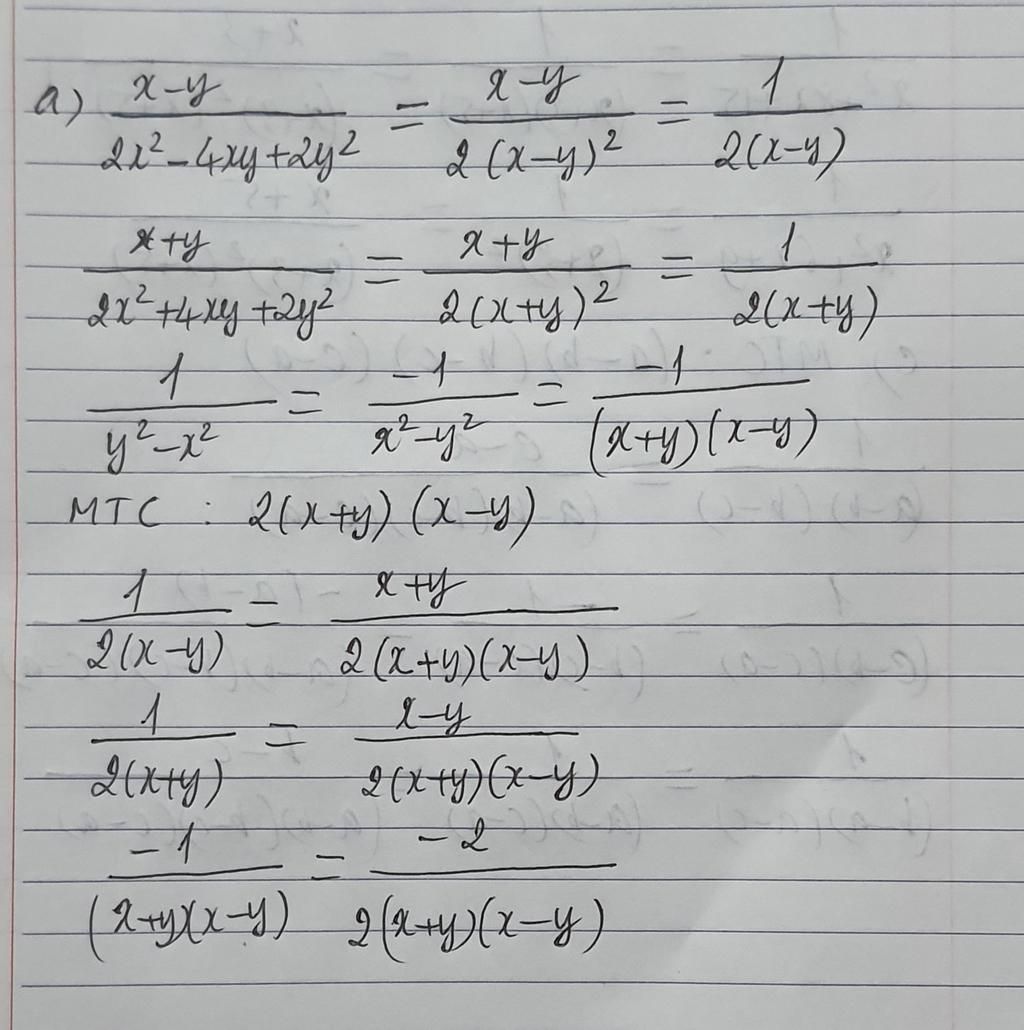 a) \frac{x-y}{2x^2-4xy+2y^2} = \frac{x-y}{2(x-y)^2} = \frac{1}{2(x-y)}
\frac{x+y}{2x^2+4xy+2y^2} = \frac{x+y}{2(x+y)^2} = \frac{1}{2(x+y)}
\frac{1}{y^2-x^2} = \frac{-1}{x^2-y^2} = \frac{-1}{(x+y)(x-y)}
MTC : 2(x+y)(x-y)
\frac{1}{2(x-y)} = \frac{x+y}{2(x+y)(x-y)}
\frac{1}{2(x+y)} = \frac{x-y}{2(x+y)(x-y)}
\frac{-1}{(x+y)(x-y)} = \frac{-2}{2(x+y)(x-y)}